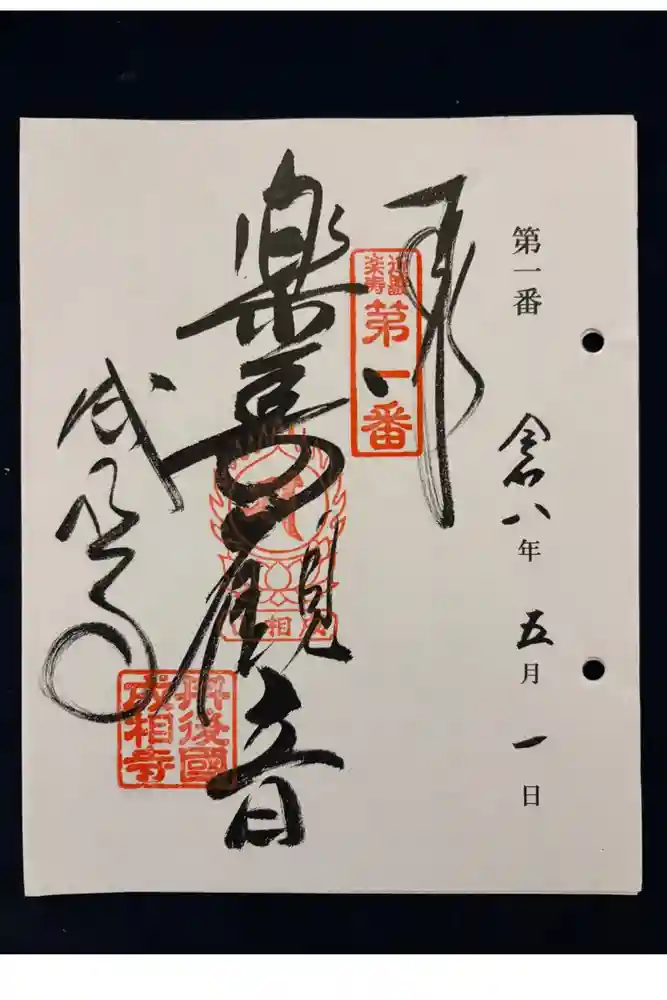 第一番
令八年五月一日
奉拝
近畿
楽寿
第一番
楽喜観音
成相寺
丹後國
成相寺